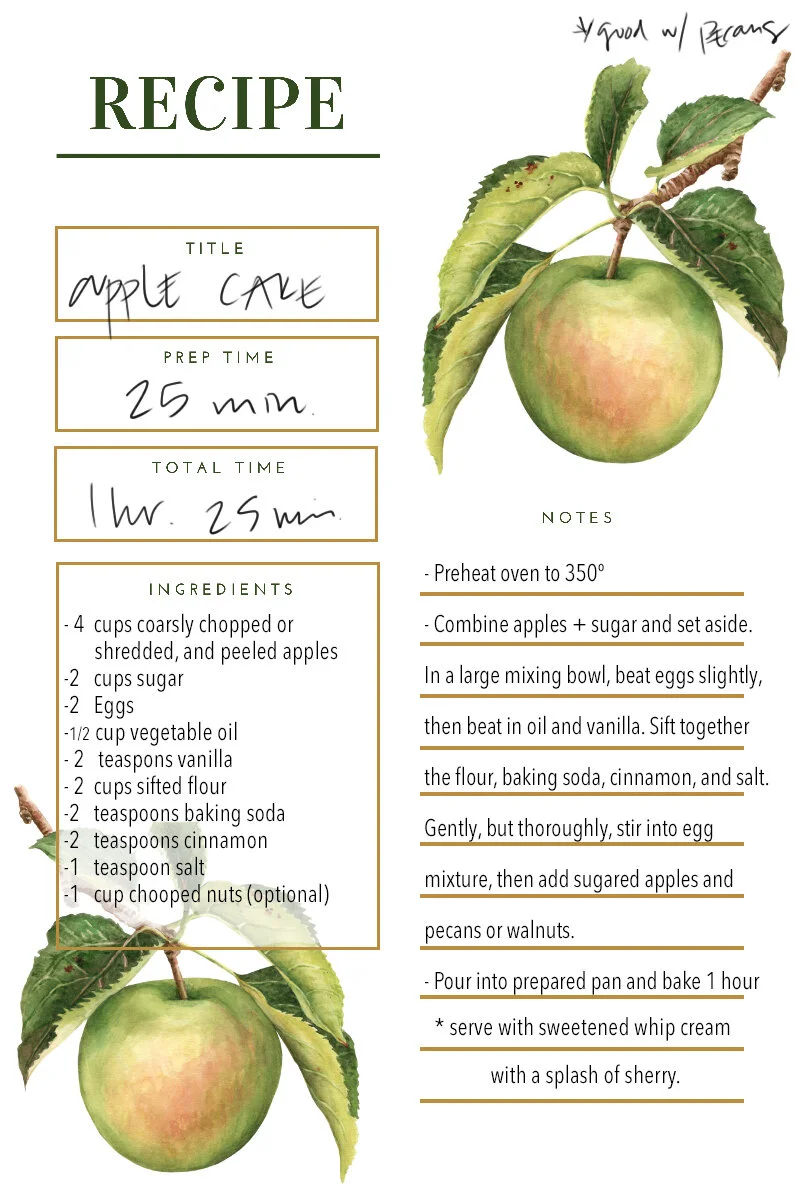 * good w/ pecans
RECIPE
TITLE
apple CAKE
PREP TIME
25 min.
TOTAL TIME
1 hr. 25 min.
INGREDIENTS
- 4 cups coarsly chopped or
shredded, and peeled apples
-2 cups sugar
-2 Eggs
-1/2 cup vegetable oil
- 2 teaspons vanilla
- 2 cups sifted flour
-2 teaspoons baking soda
-2 teaspoons cinnamon
-1 teaspoon salt
-1 cup chooped nuts (optional)
NOTES
- Preheat oven to 350º
- Combine apples + sugar and set aside.
In a large mixing bowl, beat eggs slightly,
then beat in oil and vanilla. Sift together
the flour, baking soda, cinnamon, and salt.
Gently, but thoroughly, stir into egg
mixture, then add sugared apples and
pecans or walnuts.
- Pour into prepared pan and bake 1 hour
* serve with sweetened whip cream
with a splash of sherry.